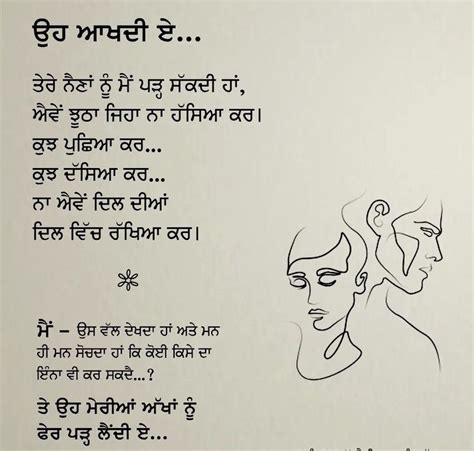 ਉਹ ਆਖਦੀ ਏ...
ਤੇਰੇ ਨੈਣਾਂ ਨੂੰ ਮੈਂ ਪੜ੍ਹ ਸੱਕਦੀ ਹਾਂ,
ਐਵੇਂ ਝੂਠਾ ਜਿਹਾ ਨਾ ਹੱਸਿਆ ਕਰ।
ਕੁਝ ਪੁਛਿਆ ਕਰ...
ਕੁਝ ਦੱਸਿਆ ਕਰ...
ਨਾ ਐਵੇਂ ਦਿਲ ਦੀਆਂ
ਦਿਲ ਵਿੱਚ ਰੱਖਿਆ ਕਰ।
ਮੈਂ – ਉਸ ਵੱਲ ਦੇਖਦਾ ਹਾਂ ਅਤੇ ਮਨ
ਹੀ ਮਨ ਸੋਚਦਾ ਹਾਂ ਕਿ ਕੋਈ ਕਿਸੇ ਦਾ
ਇੰਨਾ ਵੀ ਕਰ ਸਕਦੈ...?
ਤੇ ਉਹ ਮੇਰੀਆਂ ਅੱਖਾਂ ਨੂੰ
ਫੇਰ ਪੜ੍ਹ ਲੈਂਦੀ ਏ...